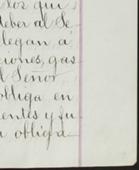 los que
deber al Se
legan, á
ciones, gas
l Señor
obliga en
entes y su
a obliga